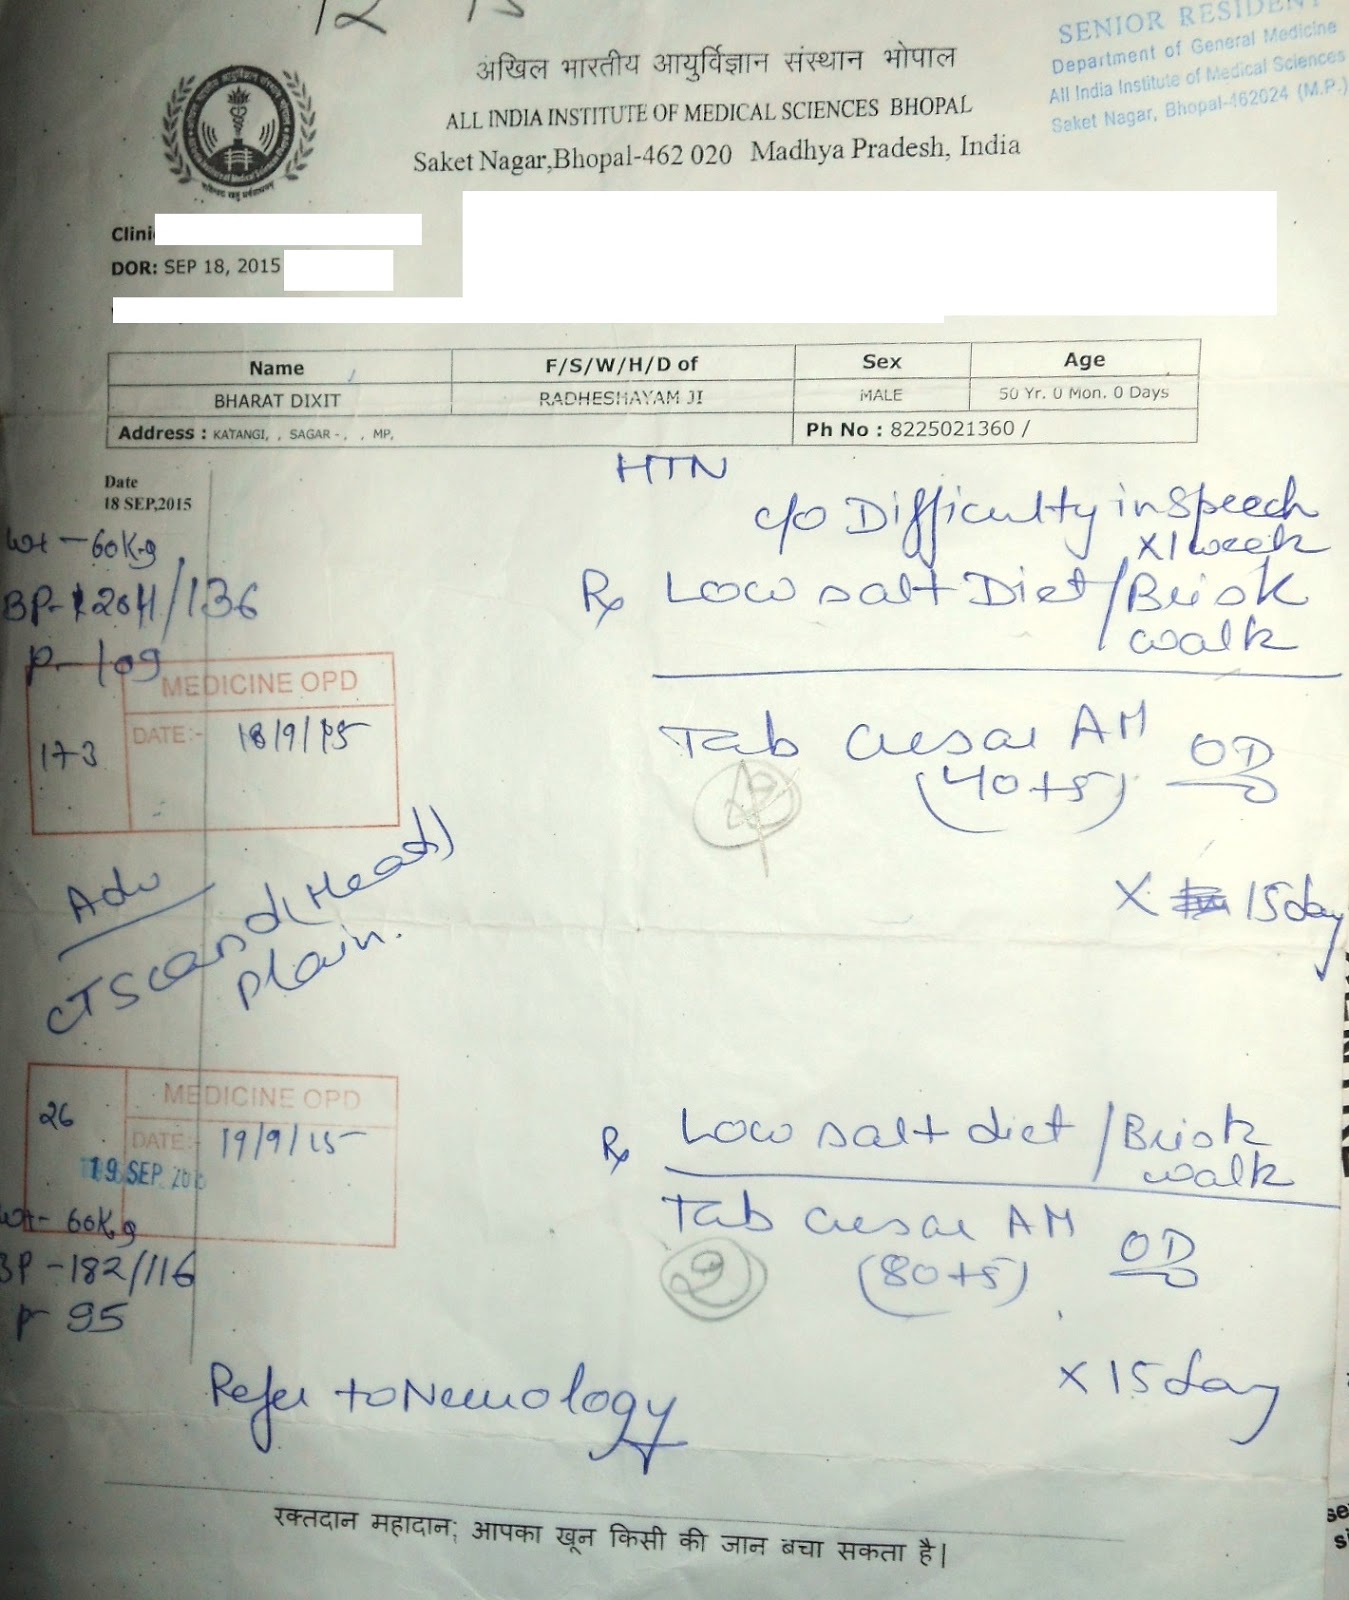 12 15
SENIOR RESIDENT
Department of General Medicine
All India Institute of Medical Sciences
Saket Nagar, Bhopal-462024 (M.P.)
अखिल भारतीय आयुर्विज्ञान संस्थान भोपाल
ALL INDIA INSTITUTE OF MEDICAL SCIENCES BHOPAL
Saket Nagar,Bhopal-462 020 Madhya Pradesh, India
Clini
DOR: SEP 18, 2015
Name F/S/W/H/D of Sex Age
BHARAT DIXIT RADHESHAYAM JI MALE 50 Yr. 0 Mon. 0 Days
Address : KATANGI, , SAGAR - , , MP, Ph No : 8225021360 /
Date
18 SEP,2015
HTN
c/o Difficulty in speech
x 1 week
Wt - 60Kg
BP- 204/136
P- 109
Rx Low salt Diet / Brisk
walk
MEDICINE OPD
DATE:- 18/9/15
173
Tab Cresar AM OD
(40+5)
X 15 day
Adv
CT Scan (Head)
plain.
MEDICINE OPD
26
DATE:- 19/9/15
19 SEP 201
Wt- 60Kg
BP -182/116
P- 95
Rx Low salt diet / Brisk
walk
Tab Cresar AM OD
(80+5)
2
x 15 day
Refer to Neurology
रक्तदान महादान; आपका खून किसी की जान बचा सकता है|